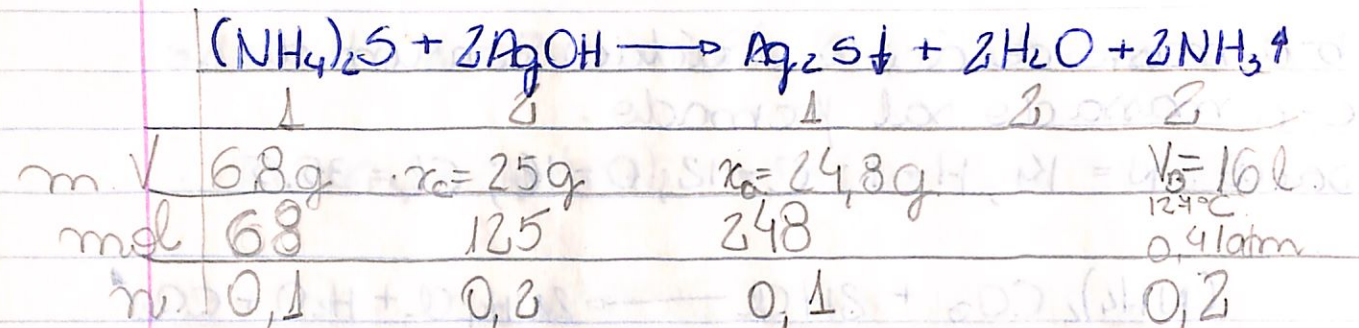 (NH₄)₂S + 2AgOH → Ag₂S↓ + 2H₂O + 2NH₃↑
1 2 1 2 2
m V 6,8g x_c=25g x_a=24,8g V_b=16l
127°C
mol 68 125 248 0,41atm
n. 0,1 0,2 0,1 0,2